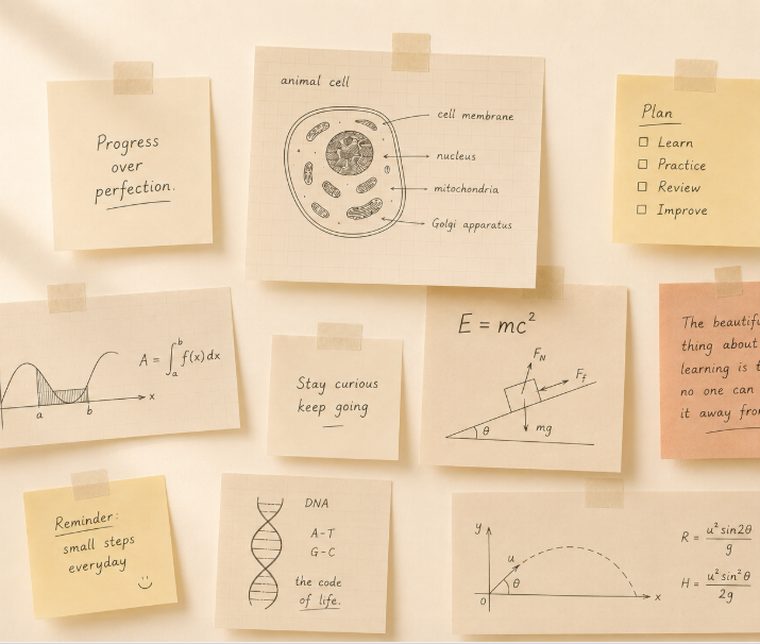 Progress
over
perfection.
animal cell
cell membrane
nucleus
mitochondria
Golgi apparatus
Plan
☐ Learn
☐ Practice
☐ Review
☐ Improve
A = ∫ₐᵇ f(x) dx
a b x
Stay curious
keep going
E = mc²
F_N
F_f
mg
θ
The beautifu
thing about
learning is t
no one can
it away fro
Reminder:
small steps
everyday
DNA
A-T
G-C
the code
of life.
y
u
θ
0
x
R = u² sin2θ / g
H = u² sin²θ / 2g